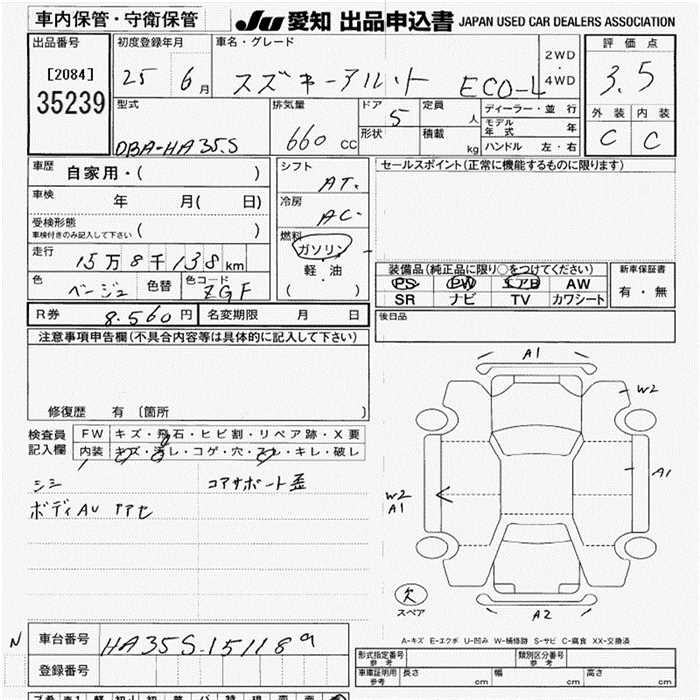 車内保管・守衛保管
JU 愛知 出品申込書 JAPAN USED CAR DEALERS ASSOCIATION
出品番号
[2084]
35239
初度登録年月
25 6月
車名・グレード
スズキーアルト ECO-L
2WD
・
4WD
評価点
3.5
外装 内装
C C
型式
DBA-HA35.S
排気量
660 CC
ドア
5
形状
定員
人
積載
kg
ディーラー・並行
モデル年式 年
ハンドル 左・右
車歴 自家用・( )
車検 年 月( 日)
受検形態
車検付きのみ記入して下さい ( )
走行 15万8千138km
色 ベージュ 色替 色コード ZGF
シフト
AT.
冷房
AC-
燃料
ガソリン
軽・油
( )
セールスポイント(正常に機能するものに限ります)
装備品(純正品に限り○をつけてください)
PS PW エアB AW
SR ナビ TV カワシート
新車保証書
有・無
R券 8.560円 名変期限 月 日
後日品
注意事項申告欄(不具合内容等は具体的に記入して下さい)
修復歴 有 [箇所 ]
検査員
記入欄
FW キズ・飛石・ヒビ割・リペア跡・X要
内装 キズ・汚レ・コゲ・穴・スレ・キレ・破レ
コアサポート歪
ボディAU
A1
W2
A1
W2
A1
欠
スペア
A2
A-キズ E-エクボ U-凹み W-補修跡 S-サビ C-腐食 XX-交換済
N 車台番号 HA35S-151189
登録番号
形式指定番号
参考
類別区分番号
参考
車庫証明用
参考
長さ cm 幅 cm 高さ cm